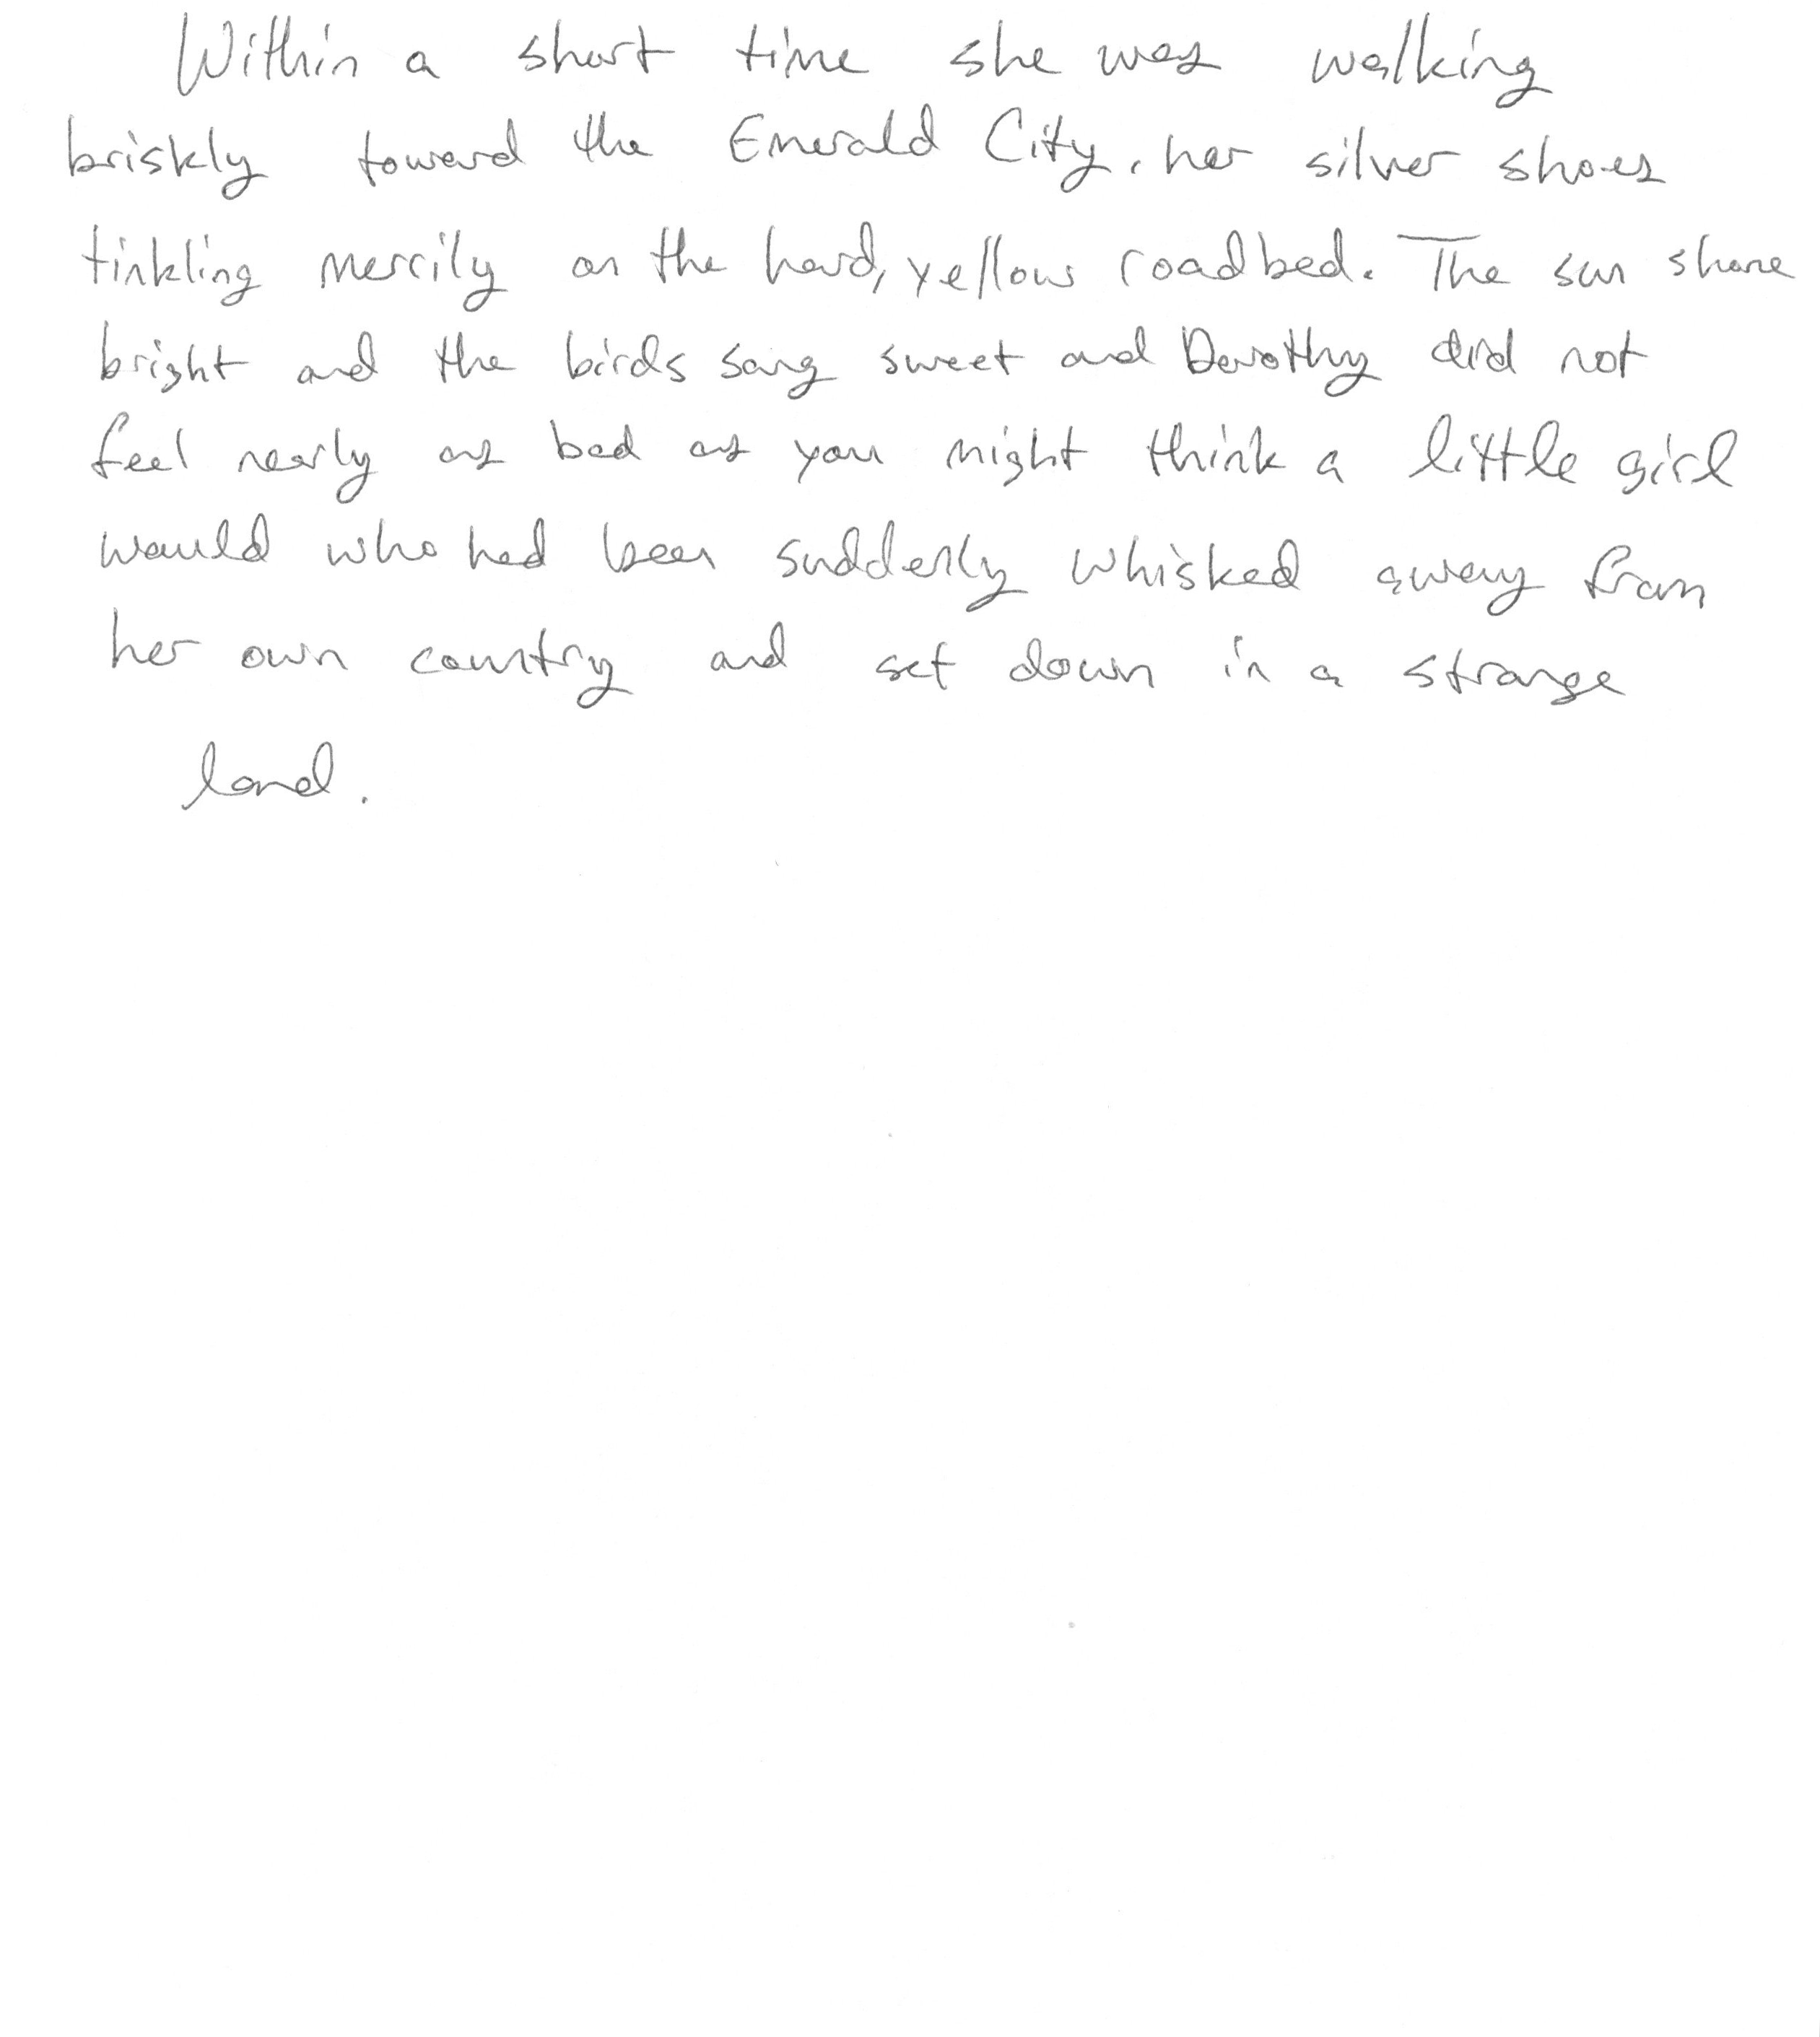 Within a short time she was walking
briskly toward the Emerald City, her silver shoes
tinkling merrily on the hard, yellow roadbed. The sun shone
bright and the birds sang sweet and Dorothy did not
feel nearly as bad as you might think a little girl
would who had been suddenly whisked away from
her own country and set down in a strange
land.